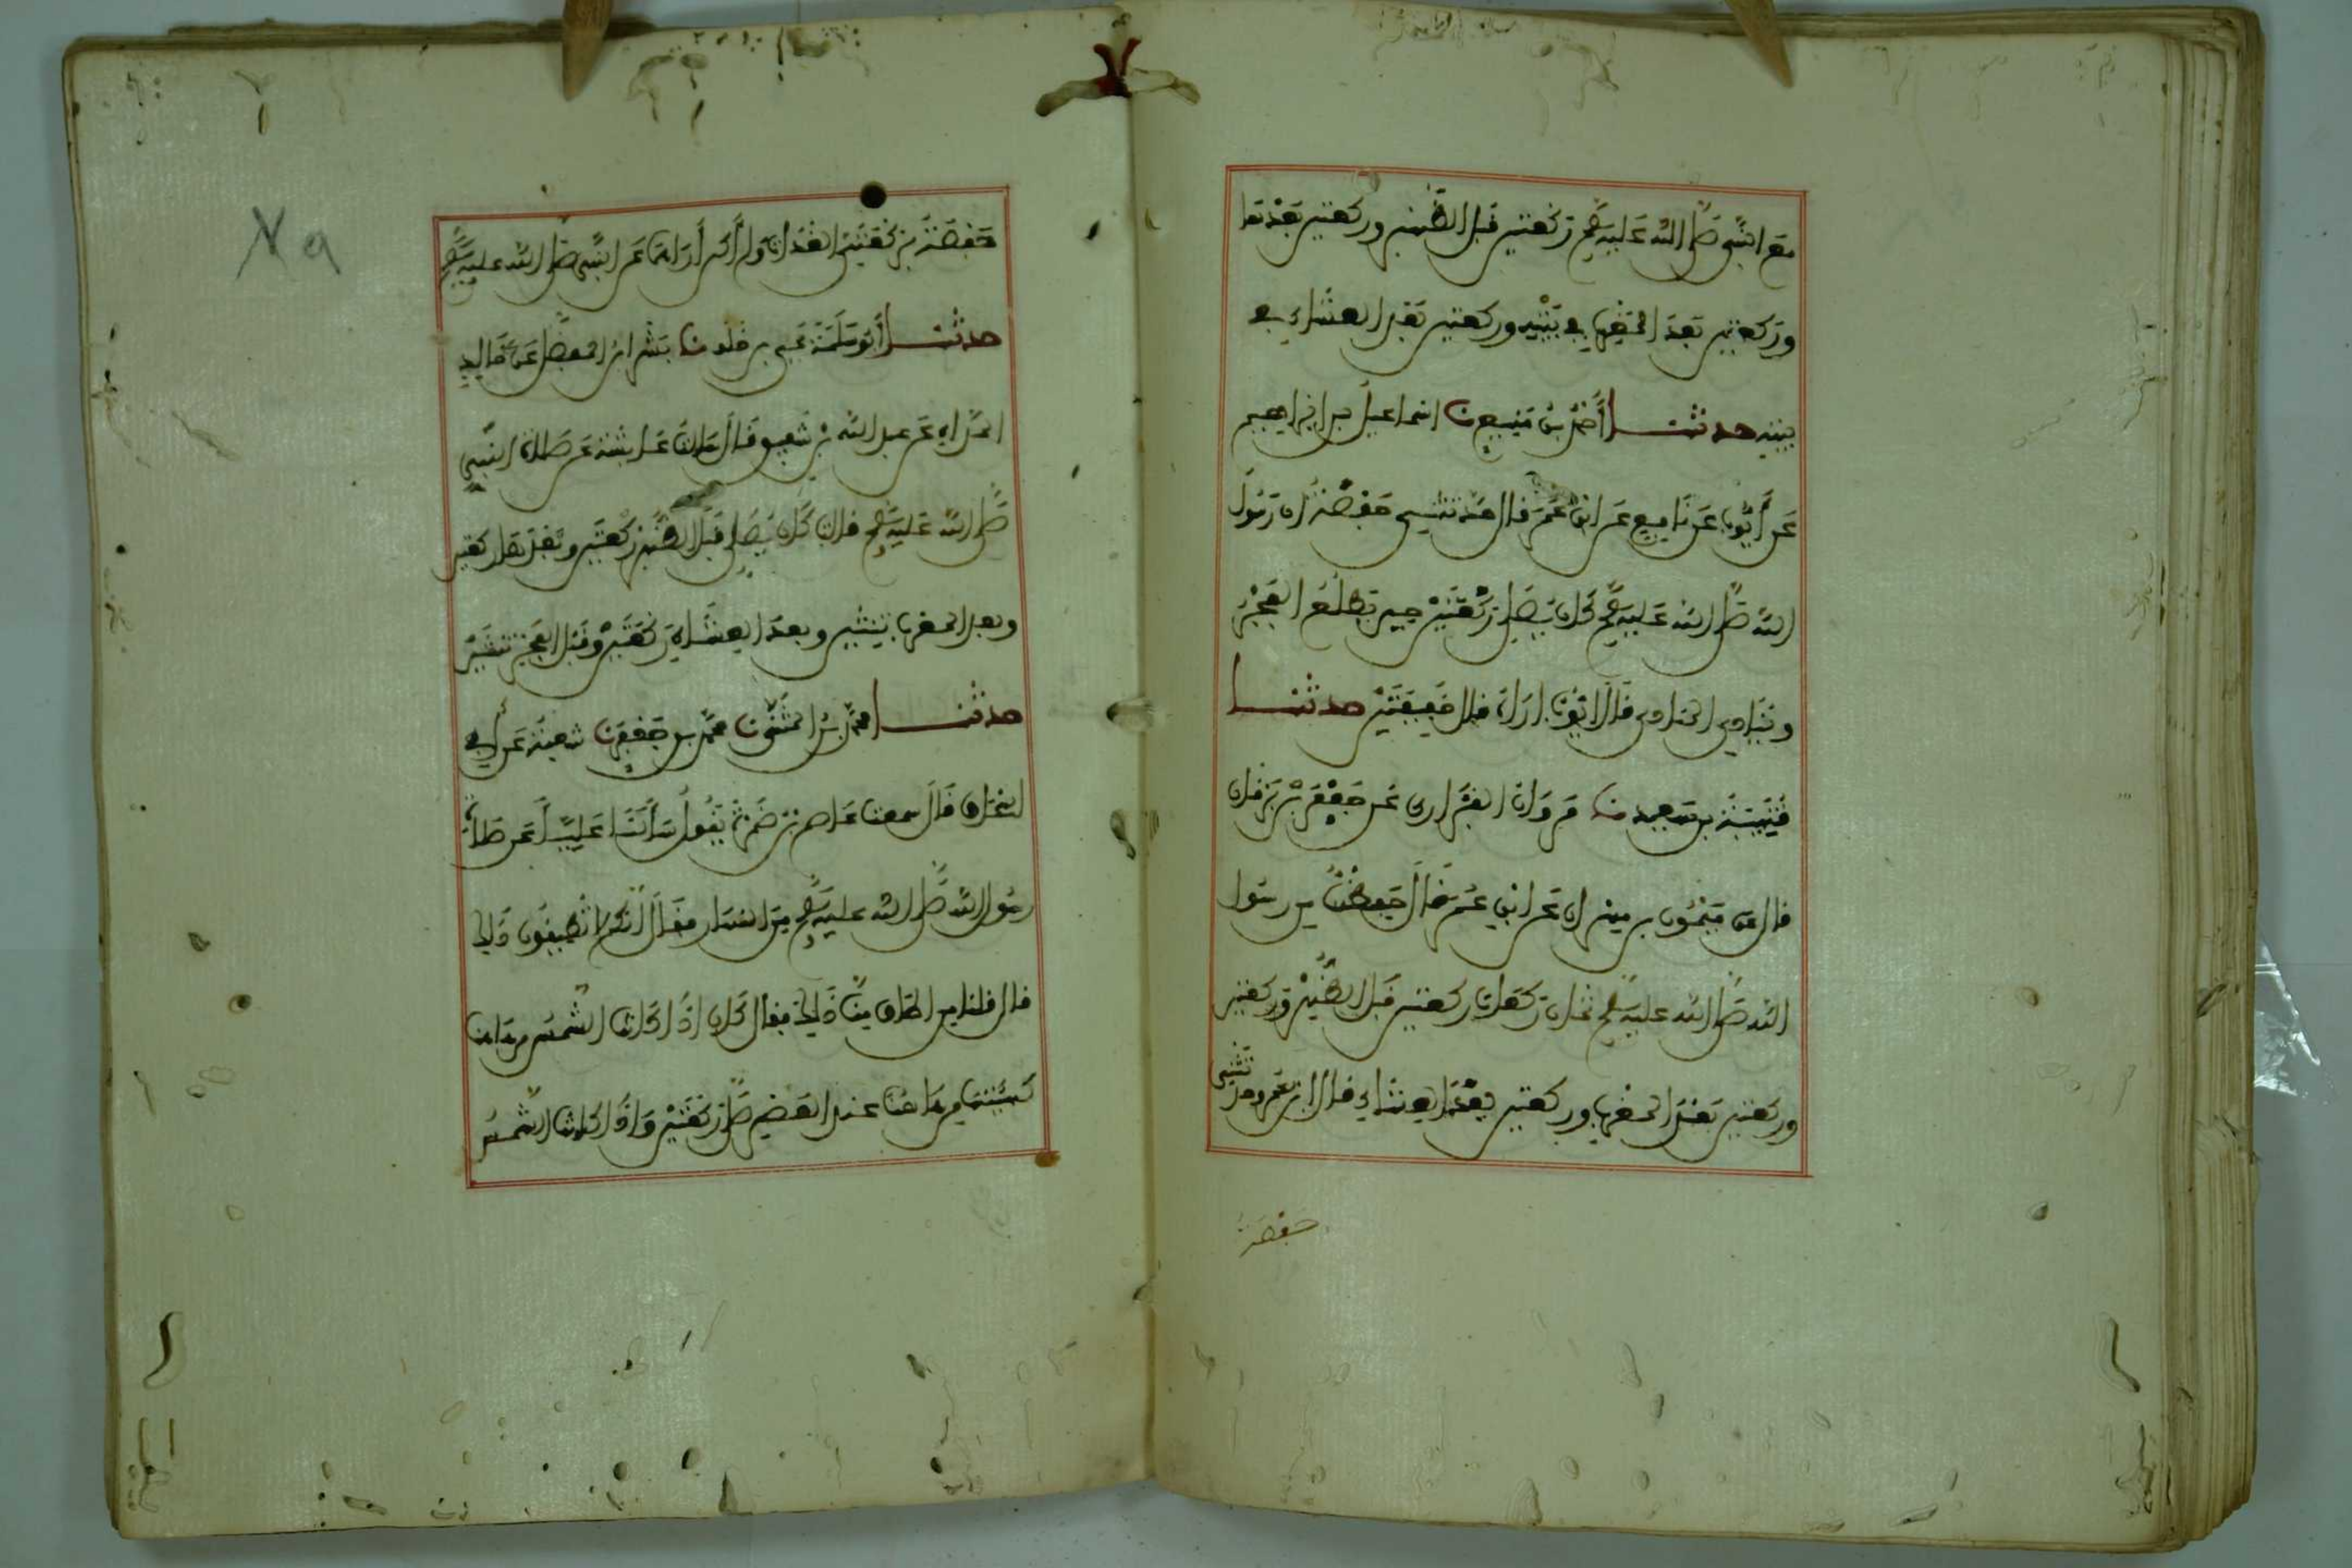 مع النبي صلى الله عليه وسلم ركعتين قبل الظهر وركعتين بعدها
وركعتين بعد المغرب في بيته وركعتين بعد العشاء في
بيته حدثنا أحمد بن منيع نا اسماعيل بن ابراهيم
عن أيوب عن نافع عن ابن عمر قال حدثتني حفصة أن رسول
الله صلى الله عليه وسلم كان يصلي ركعتين حين يطلع الفجر
وينادي المنادي قال ايوب اراه قال خفيفتين حدثنا
قتيبة بن سعيد نا مروان الفزاري عن جعفر بن برقان
قال عن ميمون بن مهران عن ابن عمر قال حفظت من رسول
الله صلى الله عليه وسلم ثمان ركعات ركعتين قبل الظهر وركعتين
وركعتين بعد المغرب وركعتين بعد العشاء قال ابن عمر وحدثتني
حفصة
حفصة بركعتي الغداة ولم أكن أراهما عن النبي صلى الله عليه وسلم
حدثنا أبو سلمة يحيى بن خلف نا بشر ابن المفضل عن خالد
الحذاء عن عبد الله بن شقيق قال سألت عايشة عن صلاة النبي
صلى الله عليه وسلم قالت كان يصلي قبل الظهر ركعتين وبعدها ركعتين
وبعد المغرب ثنتين وبعد العشاء ركعتين وقبل الفجر ثنتين
حدثنا محمد بن المثنى نا محمد بن جعفر نا شعبة عن أبي
اسحاق قال سمعت عاصم بن ضمرة يقول سألنا عليا عن صلاة
رسول الله صلى الله عليه وسلم من النهار فقال انكم لا تطيقون ذلك
قال قلنا من اطاق منا ذلك فقال كان اذا كانت الشمس من هاهنا
كهيئتها من هاهنا عند العصر صلى ركعتين واذا كانت الشمس